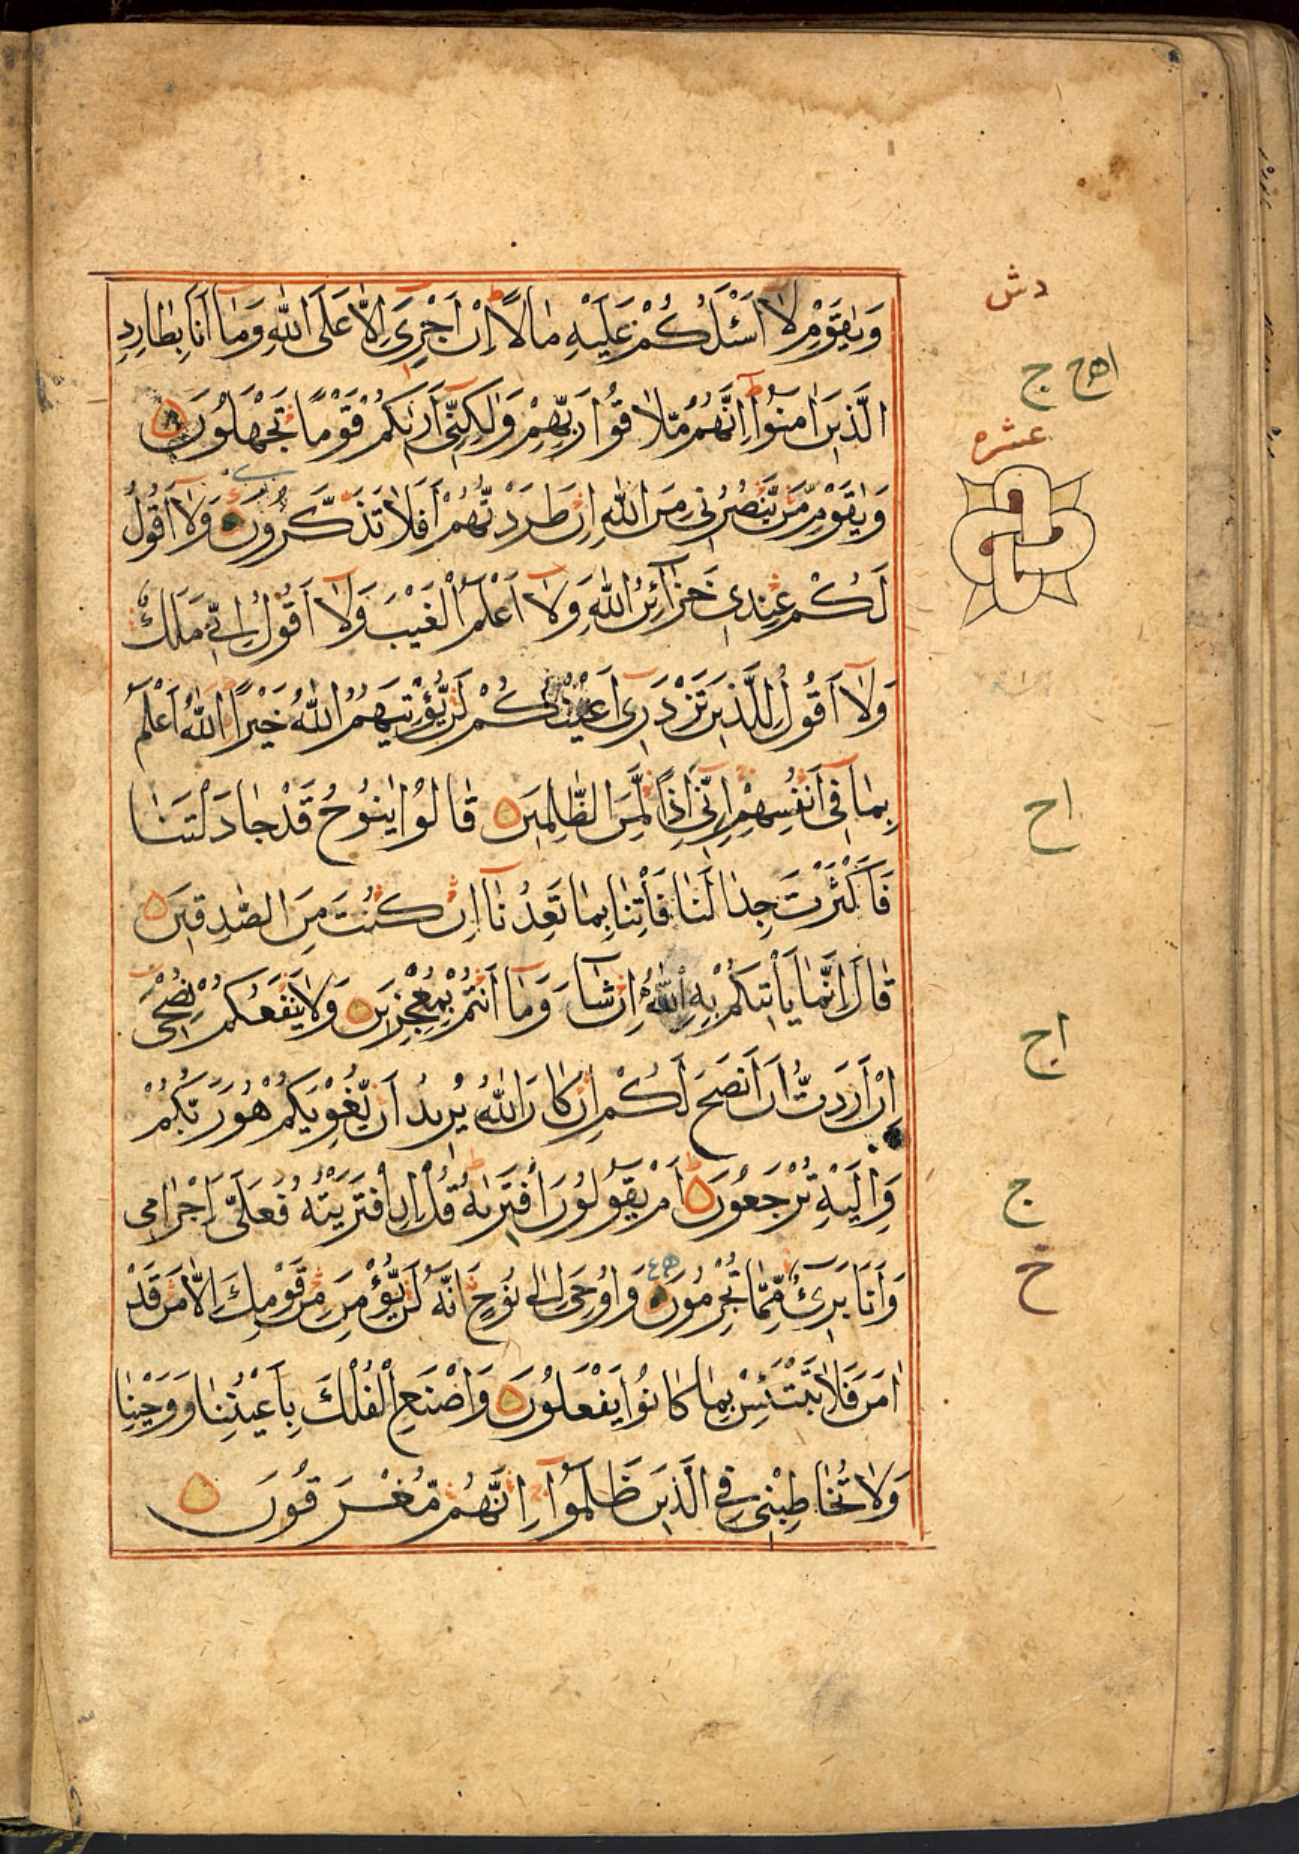 وَيٰقَوْمِ لَآ اَسْـَٔلُكُمْ عَلَيْهِ مَالًا اِنْ اَجْرِيَ اِلَّا عَلَى اللّٰهِ وَمَآ اَنَا بِطَارِدِ
الَّذِيْنَ اٰمَنُوْا اِنَّهُمْ مُّلَاقُوْا رَبِّهِمْ وَلٰكِنِّيْٓ اَرٰىكُمْ قَوْمًا تَجْهَلُوْنَ
وَيٰقَوْمِ مَنْ يَّنْصُرُنِيْ مِنَ اللّٰهِ اِنْ طَرَدْتُّهُمْ اَفَلَا تَذَكَّرُوْنَ وَلَآ اَقُوْلُ
لَكُمْ عِنْدِيْ خَزَآئِنُ اللّٰهِ وَلَآ اَعْلَمُ الْغَيْبَ وَلَآ اَقُوْلُ اِنِّيْ مَلَكٌ
وَلَآ اَقُوْلُ لِلَّذِيْنَ تَزْدَرِيْٓ اَعْيُنُكُمْ لَنْ يُّؤْتِيَهُمُ اللّٰهُ خَيْرًا اَللّٰهُ اَعْلَمُ
بِمَا فِيْٓ اَنْفُسِهِمْ اِنِّيْٓ اِذًا لَّمِنَ الظّٰلِمِيْنَ قَالُوْا يٰنُوْحُ قَدْ جَادَلْتَنَا
فَاَكْثَرْتَ جِدَالَنَا فَأْتِنَا بِمَا تَعِدُنَآ اِنْ كُنْتَ مِنَ الصّٰدِقِيْنَ
قَالَ اِنَّمَا يَأْتِيْكُمْ بِهِ اللّٰهُ اِنْ شَآءَ وَمَآ اَنْتُمْ بِمُعْجِزِيْنَ وَلَا يَنْفَعُكُمْ نُصْحِيْٓ
اِنْ اَرَدْتُّ اَنْ اَنْصَحَ لَكُمْ اِنْ كَانَ اللّٰهُ يُرِيْدُ اَنْ يُّغْوِيَكُمْ هُوَ رَبُّكُمْ
وَاِلَيْهِ تُرْجَعُوْنَ اَمْ يَقُوْلُوْنَ افْتَرٰىهُ قُلْ اِنِ افْتَرَيْتُهٗ فَعَلَيَّ اِجْرَامِيْ
وَاَنَا بَرِيْٓءٌ مِّمَّا تُجْرِمُوْنَ وَاُوْحِيَ اِلٰى نُوْحٍ اَنَّهٗ لَنْ يُّؤْمِنَ مِنْ قَوْمِكَ اِلَّا مَنْ قَدْ
اٰمَنَ فَلَا تَبْتَئِسْ بِمَا كَانُوْا يَفْعَلُوْنَ وَاصْنَعِ الْفُلْكَ بِاَعْيُنِنَا وَوَحْيِنَا
وَلَا تُخَاطِبْنِيْ فِي الَّذِيْنَ ظَلَمُوْا اِنَّهُمْ مُّغْرَقُوْنَ
دش
عشره
اح
اج
ج
خ